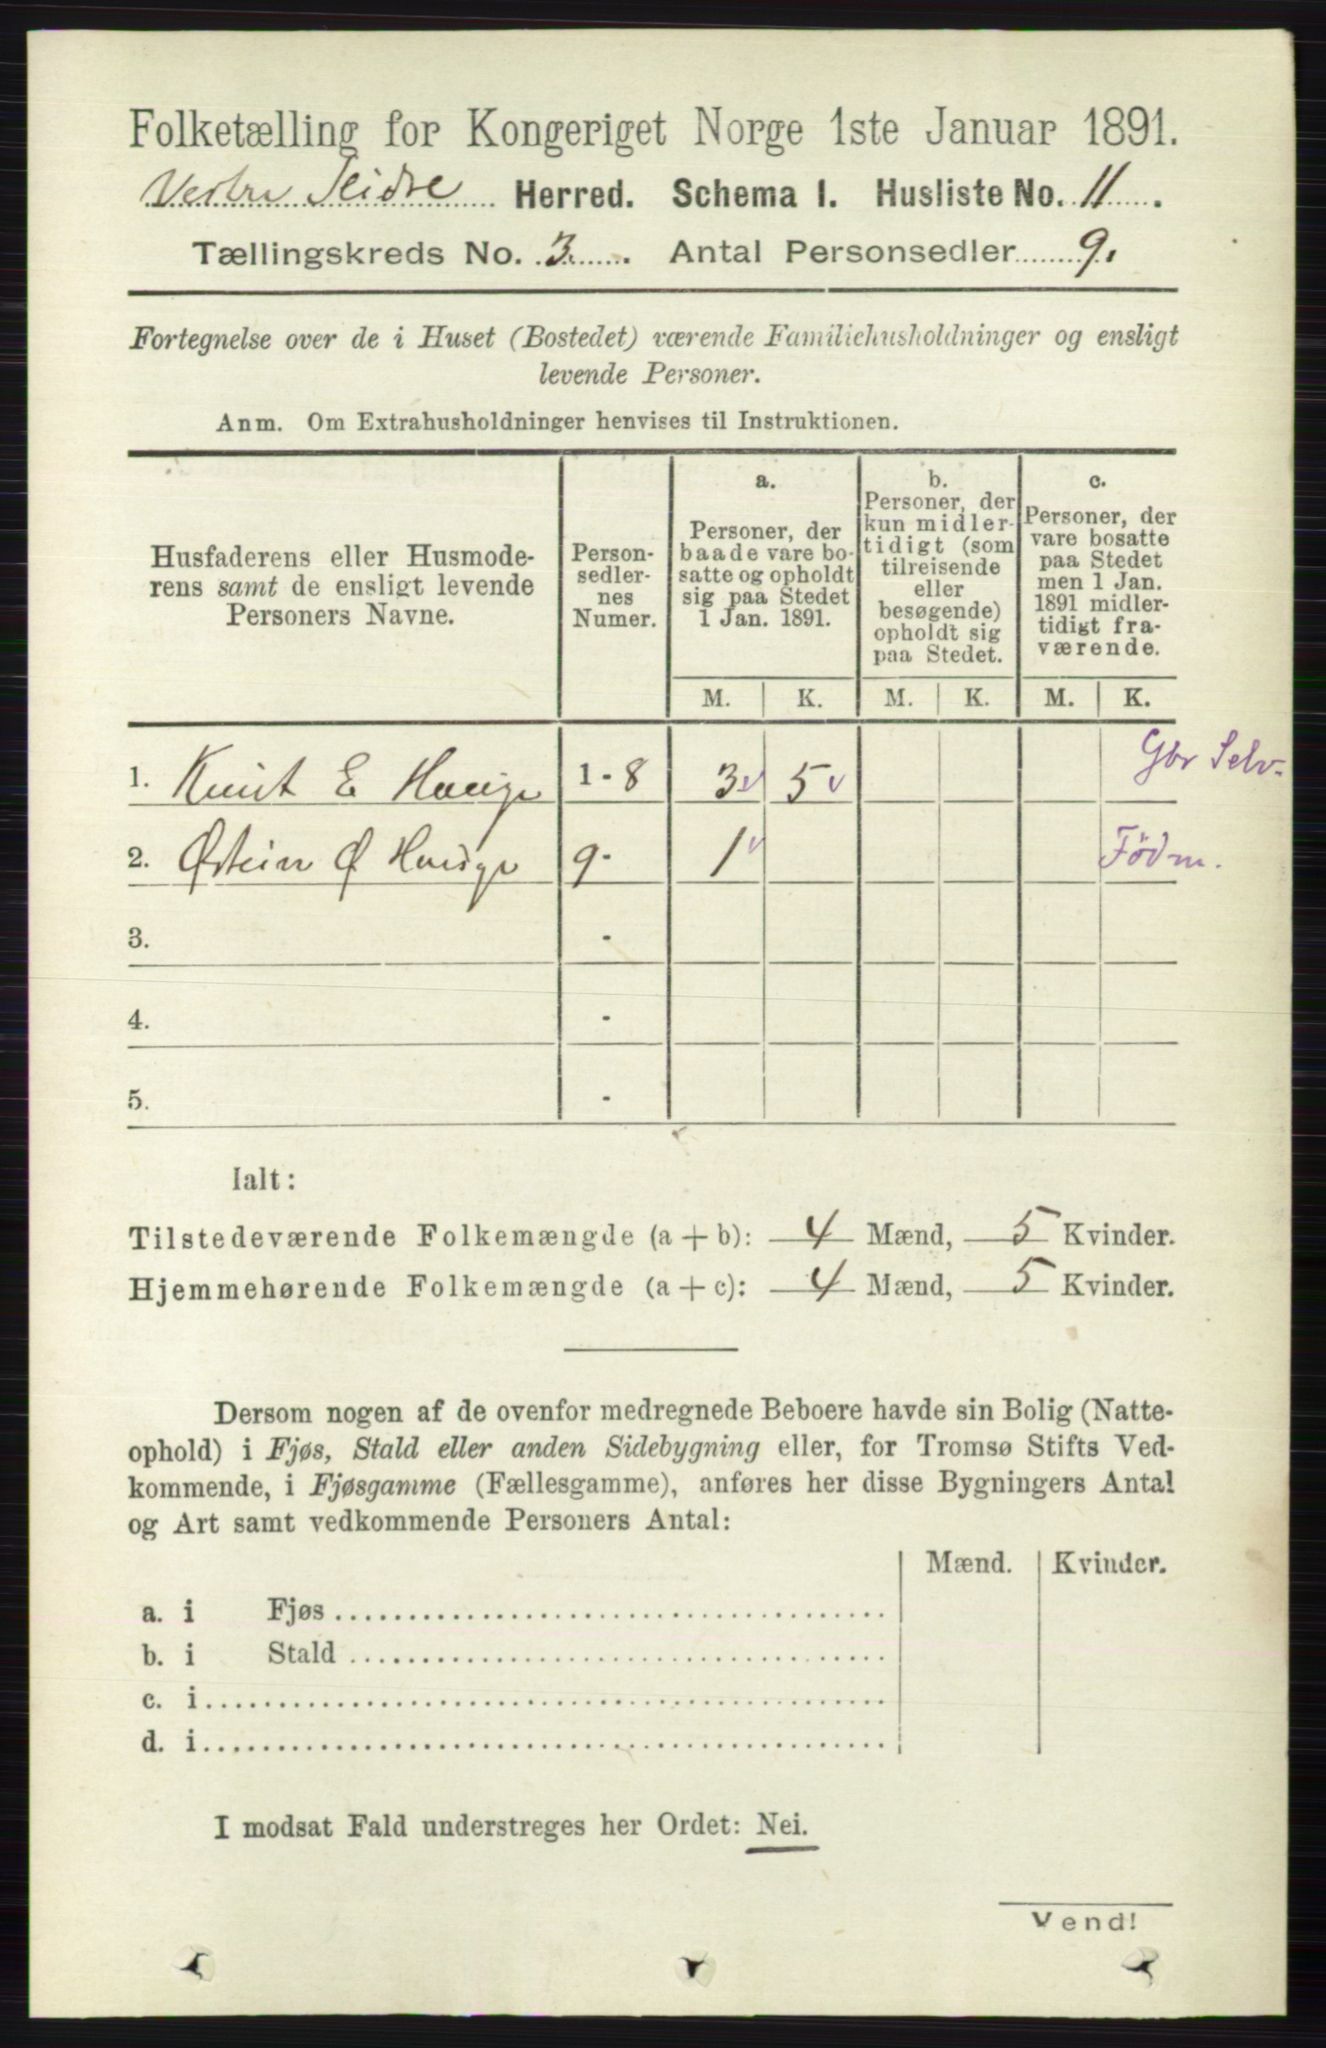 Folketælling for Kongeriget Norge 1ste Januar 1891.
Vestre Slidre Herred. Schema I. Husliste No. 11.
Tællingskreds No. 3. Antal Personsedler 9.
Fortegnelse over de i Huset (Bostedet) værende Familiehusholdninger og ensligt
levende Personer.
Anm. Om Extrahusholdninger henvises til Instruktionen.
Husfaderens eller Husmode-
rens samt de ensligt levende
Personers Navne.
Person-
sedler-
nes
Numer.
a.
Personer, der
baade vare bo-
satte og opholdt
sig paa Stedet
1 Jan. 1891.
b.
Personer, der
kun midler-
tidigt (som
tilreisende
eller
besøgende)
opholdt sig
paa Stedet.
c.
Personer, der
vare bosatte
paa Stedet
men 1 Jan.
1891 midler-
tidigt fra-
værende.
M. K. M. K. M. K.
1. Knut E Hauge 1 - 8 3 v 5 v Gbr Selv.
2. Østein Ø Hauge 9 - 1 v Födm.
3. -
4. -
5. -
Ialt:
Tilstedeværende Folkemængde (a + b): 4 Mænd, 5 Kvinder.
Hjemmehørende Folkemængde (a + c): 4 Mænd, 5 Kvinder.
Dersom nogen af de ovenfor medregnede Beboere havde sin Bolig (Natte-
ophold) i Fjøs, Stald eller anden Sidebygning eller, for Tromsø Stifts Ved-
kommende, i Fjøsgamme (Fællesgamme), anføres her disse Bygningers Antal
og Art samt vedkommende Personers Antal:
Mænd. Kvinder.
a. i Fjøs
b. i Stald
c. i
d. i
I modsat Fald understreges her Ordet: Nei.
Vend!